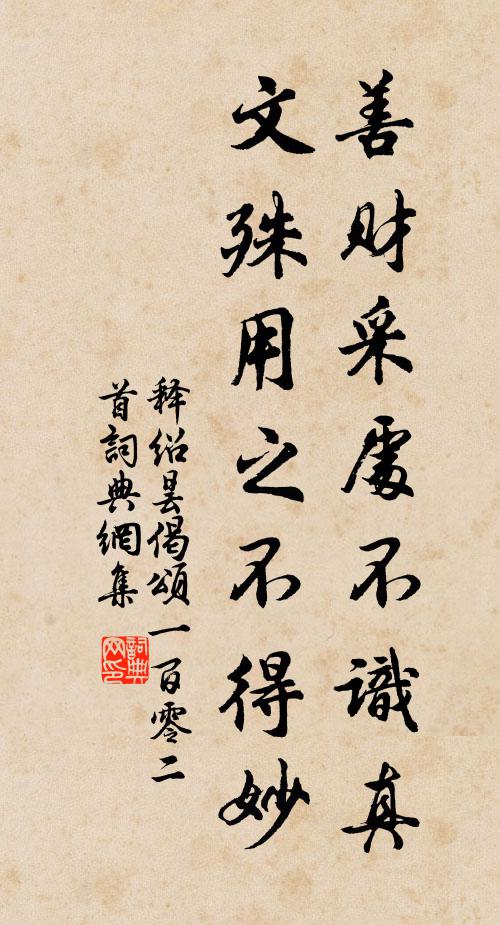 善财采處不識真
文殊用之不得妙
释绍昙偈頌一百零二
首詞典網集
詞典
网印